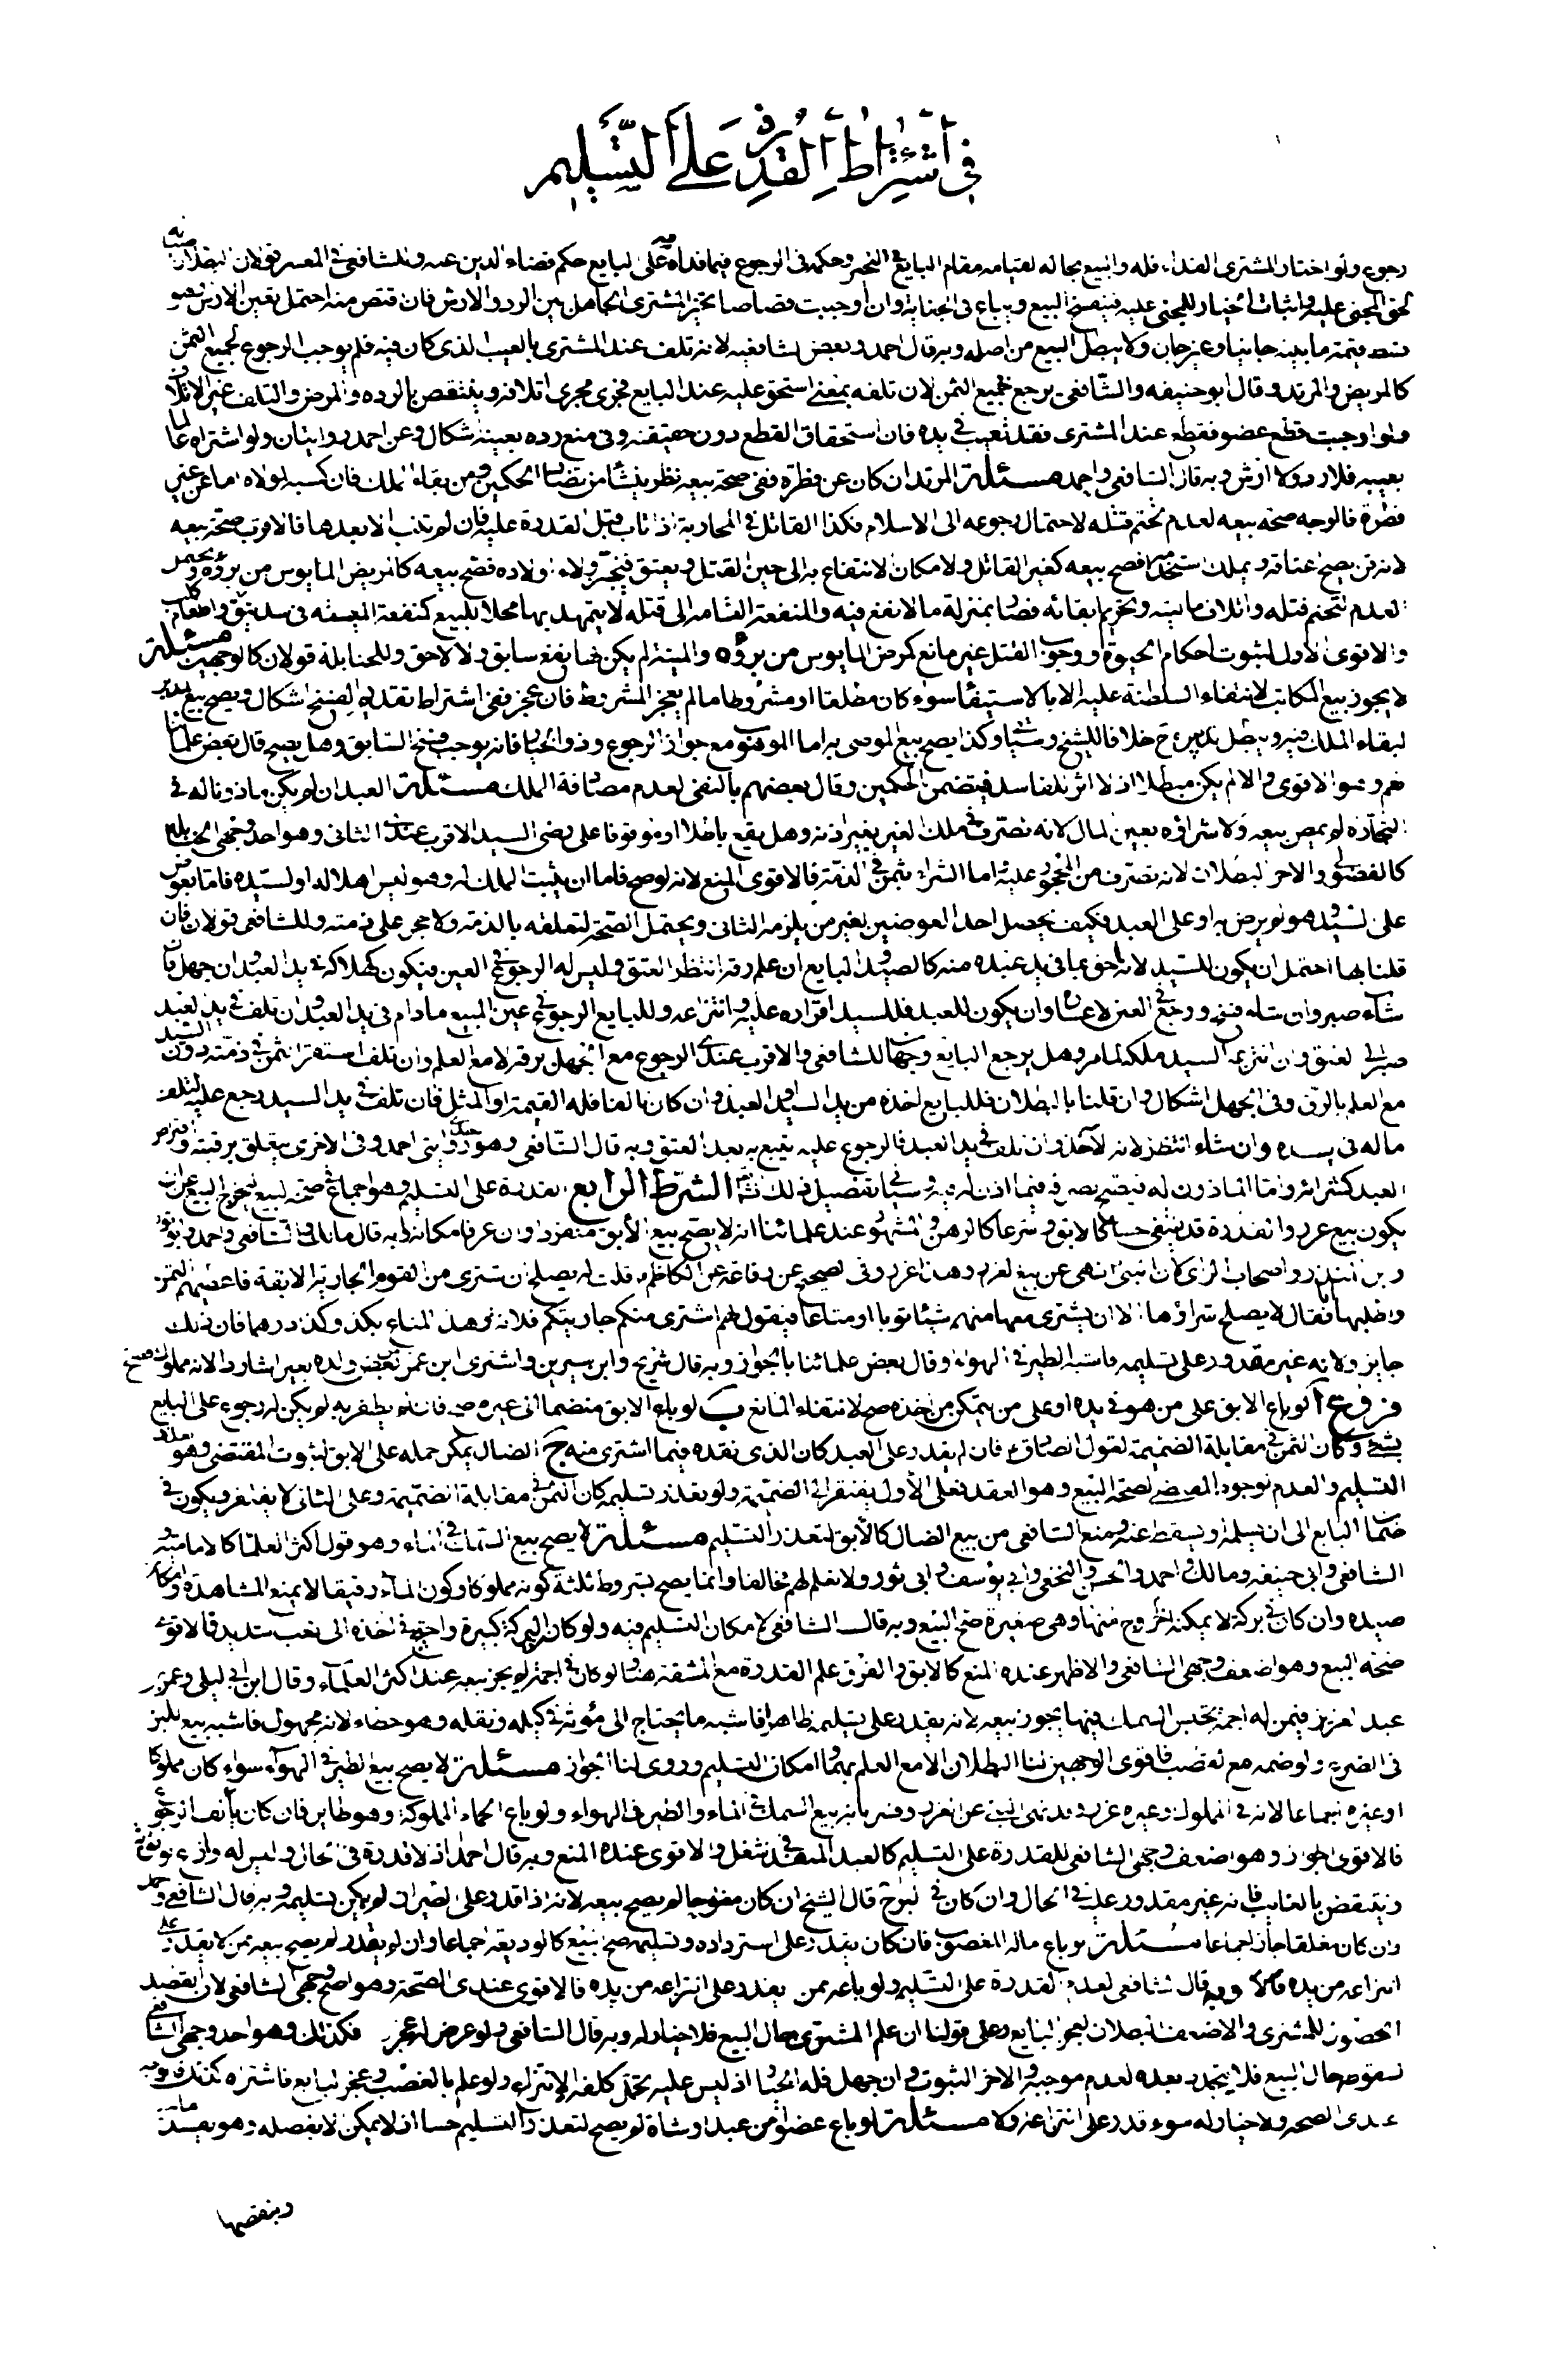 في اشتراط القدرة على التسليم
رجوع ولو اختار المشتري الفداء فله والبيع بحاله لقيامه مقام البايع في التخير وحكمه في الرجوع فيما فداه به على البايع حكم قضاء الدين عنه وللشافعي في المعسر قولان البطلان صيانة
لحق المجني عليه واثبات الخيار للمجني عليه فينفسخ البيع ويباع في الجناية وان اوجبت قصاصا تخير المشتري الجاهل بين الرد والارش فان اقتص منه احتمل تعين الارش وهو
قسط قيمته ما بينه جانيا وغير جان ولا يبطل البيع من اصله وبه قال احمد وبعض الشافعيه لانه تلف عند المشتري بالعيب الذي كان فيه فلم يوجب الرجوع لجميع الثمن
كالمريض والمرتد وقال ابو حنيفه والشافعي يرجع بجميع الثمن لان تلفه بمعنى استحق عليه عند البايع فجرى مجرى اتلافه وينتقض بالرده والمرض والتلف غير الاتلاف
ولو اوجبت قطع عضو فقطع عند المشتري فقد تعيب في يده فان استحقاق القطع دون حقيقته وفي منع رده بعيبه اشكال وعن احمد روايتان ولو اشتراه عالما
بعيبه فلا رد ولا ارش وبه قال الشافعي واحمد مسئلة المرتد ان كان عن فطرة ففي صحة بيعه نظر ينشأ من تضاد الحكمين ومن بقاء الملك فان كسبه لمولاه اما عن غير
فطرة فالوجه صحة بيعه لعدم تحتم قتله لاحتمال رجوعه الى الاسلام وكذا القاتل في المحاربة اذا تاب قبل القدرة عليه فان لم يتب الا بعدها فالاقرب صحة بيعه
لانه قن يصح عتاقه ويملك استخدامه فصح بيعه كغير القاتل ولامكان الانتفاع به الى حين القتل ويعتق فينجر ولاء اولاده فصح بيعه كالمريض المايوس من برؤه ويحتمل
العدم لتحتم قتله واتلاف ماليته وتحريم ابقائه فصار بمنزلة ما لا نفع فيه والمنفعة المفضية الى قتله لا يتمهد بها محلا للبيع كمنفعة الميتة في سد بثق واطعام كلب
والاقوى الاول لثبوت احكام الحيوة ووجوب القتل غير مانع كمرض المايوس من برؤه والميتة لم يكن لها نفع سابق ولا لاحق وللحنابلة قولان كالوجهين مسئلة
لا يجوز بيع المكاتب لانتفاء السلطنة عليه الا بالاستيفاء سواء كان مطلقا او مشروطا ما لم يعجز المشروط فان عجز ففي اشتراط تقديم الفسخ اشكال ويصح بيع المدبر
لبقاء الملك فيه ويبطل تدبيره ح خلافا للشيخ وسياتي وكذا يصح بيع الموصى به اما الموهوب مع جواز الرجوع وذو الخيار فانه يوجب فسخ السابق وهل يصح قال بعض علمائنا
نعم وهو الاقوى والا لم يكن مبطلا اذ لا اثر للفاسد فيتضمن الحكمين وقال بعضهم بالنفي لعدم مصادفة الملك مسئلة العبد ان لم يكن ماذونا له في
التجارة لم يمض بيعه ولا شراؤه بعين المال لانه تصرف في ملك الغير بغير اذنه وهل يقع باطلا او موقوفا على رضى السيد الاقرب عندي الثاني وهو احد وجهي الحنابلة
كالفضولي والاخر البطلان لانه تصرف من المحجور عليه اما الشراء بثمن في الذمة فالاقوى المنع لانه لو صح فاما ان يثبت الملك له وهو ليس اهلا له او لسيده فاما بعوض
على السيد وهو لم يرض به او على العبد فكيف يحصل احد العوضين لغير من يلزمه الثاني ويحتمل الصحة لتعلقه بالذمة ولا حجر على ذمته وللشافعي قولان فان
قلنا بها احتمل ان يكون للسيد لانه احق بما في يد عبده منه كالصيد والبايع ان علم رقه انتظر العتق وليس له الرجوع في العين فيكون كهلاكه في يد العبد وان جهل فان
شاء صبر وان شاء فسخ ورجع في العين لاعساره وان يكون للعبد فللسيد اقراره عليه وانتزاعه وللبايع الرجوع في عين المبيع ما دام في يد العبد وان تلف في يد العبد
صبر الى العتق وان انتزعه السيد ملكه لما مر وهل يرجع البايع وجهان للشافعي والاقرب عندي الرجوع مع الجهل برقه لا مع العلم وان تلف استقر الثمن في ذمته دون السيد
مع العلم بالرق وفي الجهل اشكال وان قلنا بالبطلان فللبايع اخذه من يد السيد او يد العبد وان كان تالفا فله القيمة او المثل فان تلف في يد السيد رجع عليه لتلف
ماله في يده وان شاء انتظر لانه الآخذ وان تلف في يد العبد فالرجوع عليه يتبع به بعد العتق وبه قال الشافعي وهو احدى روايتي احمد وفي الاخرى يتعلق برقبته واقتراض
العبد كشرائه واما الماذون له فيصح تصرفه فيما اذن له فيه وسياتي تفصيل ذلك ان شاء الله الشرط الرابع القدرة على التسليم وهو اجماع في صحة البيع ليخرج البيع عن ان
يكون بيع غرر وانتفاء القدرة قد ينتفي حسا كالابق وشرعا كالرهن والمشهور عند علمائنا انه لا يصح بيع الآبق منفردا وان عرفا مكانه وبه قال مالك والشافعي واحمد وابو ثور
وابن المنذر واصحاب الراي لان النبي نهى عن بيع الغرر وهذا غرر وفي الصحيح عن رفاعة عن الكاظم قلت له يصلح ان تشتري من القوم الجارية الابقة فاعطيهم الثمن
واطلبها فقال لا يصلح شراؤها الا ان يشترى معها منهم شيئا ثوبا او متاعا فيقول لهم اشتري منكم جاريتكم فلانة وهذا المتاع بكذا وكذا درهما فان ذلك
جايز ولانه غير مقدور على تسليمه فاشبه الطير في الهواء وقال بعض علمائنا بالجواز وبه قال شريح وابن سيرين واشترى ابن عمر من بعض ولده بعيرا شاردا لانه مملوك فصح
فروع آ لو باع الابق على من هو في يده او على من يتمكن من اخذه صح لانتفاء المانع ب لو باع الابق منضما الى غيره صح فان لم يظفر به لم يكن له رجوع على البايع
بشيء وكان الثمن في مقابلة الضميمة لقول الصادق ع فان لم يقدر على العبد كان الذي نقده فيما اشترى منه ج الضال يمكن حمله على الابق لثبوت المقتضي وهو تعذر
التسليم والعدم لوجود المقتضي لصحة البيع وهو العقد فعلى الأول يفتقر الى الضميمة ولو تعذر تسليمه كان الثمن في مقابلة الضميمة وعلى الثاني لا يفتقر ويكون في
ضمان البايع الى ان يسلمه او يسقط عنه ومنع الشافعي من بيع الضال كالآبق لتعذر التسليم مسئلة لا يصح بيع السمك في الماء وهو قول اكثر العلماء كالامامية و
الشافعي وابي حنيفه ومالك واحمد والحسن والنخعي وابي يوسف وابي ثور ولا نعلم لهم مخالفا وانما يصح بشروط ثلثة كونه مملوكا وكون الماء رقيقا لا يمنع المشاهدة وامكان
صيده وان كان في بركة لا يمكنه الخروج منها وهي صغيرة صح البيع وبه قال الشافعي لامكان التسليم فيه ولو كان البركة كبيرة واحتيج في اخذه الى تعب شديد فالاقوى
صحة البيع وهو اضعف وجهي الشافعي والاظهر عنده المنع كالابق والفرق علم القدرة مع المشقة هنا ولو كان في اجمة لم يجز بيعه عند اكثر العلماء وقال ابن ابي ليلى وعمر بن
عبد العزيز فيمن له اجمة يحبس السمك فيها يجوز بيعه لانه يقدر على تسليمه ظاهرا فاشبه ما يحتاج الى مؤنة في كيله ونقله وهو خطاء لانه مجهول فاشبه بيع اللبن
في الضرع ولو ضمه مع القصب فاقوى الوجهين لنا البطلان الا مع العلم بهما وامكان التسليم وروي لنا الجواز مسئلة لا يصح بيع الطير في الهواء سواء كان مملوكا
او غيره اجماعا لانه في المملوك وغيره غرر وقد نهى النبي عن الغرر وفسر بانه بيع السمك في الماء والطير في الهواء ولو باع الحمام المملوكة وهو طاير فان كان يألف الرجوع
فالاقوى الجواز وهو اضعف وجهي الشافعي للقدرة على التسليم كالعبد المنفذ في شغل والاقوى عنده المنع وبه قال احمد اذ لا قدرة في الحال وليس له وازع يوثق به
وينتقض بالغايب فانه غير مقدور عليه في الحال وان كان في البرج قال الشيخ ان كان مفتوحا لم يصح بيعه لانه اذا قدر على الطيران لم يمكن تسليمه وبه قال الشافعي واحمد
وان كان مغلقا جاز اجماعا مسئلة لو باع ماله المغصوب فان كان يقدر على استرداده وتسليمه صح البيع كالوديعة اجماعا وان لم يقدر لم يصح بيعه ممن لا يقدر على
انتزاعه من يده وبه قال الشافعي لعدم القدرة على التسليم ولو باعه ممن يقدر على انتزاعه من يده فالاقوى عندي الصحة وهو اصح وجهي الشافعي لان القصد
الحصول للمشتري والاضعف البطلان لعجز البايع وعلى قولنا ان علم المشتري حال البيع فلا خيار له وبه قال الشافعي ولو عرض له عجز فكذلك وهو احد وجهي الشافعي
لسقوطه حال البيع فلا يتجدد بعده لعدم موجبه والاخر الثبوت وان جهل فله الخيار اذ ليس عليه تحمل كلفة الانتزاع ولو علم بالغصب وعجز البايع فاشتراه كذلك فالوجه
عندي الصحة ولا خيار له سواء قدر على انتزاعه او لا مسئلة لو باع عضوا من عبد او شاة لم يصح لتعذر التسليم حسا اذ لا يمكن الا بفصله وهو يفسد ماليته
وينقصها